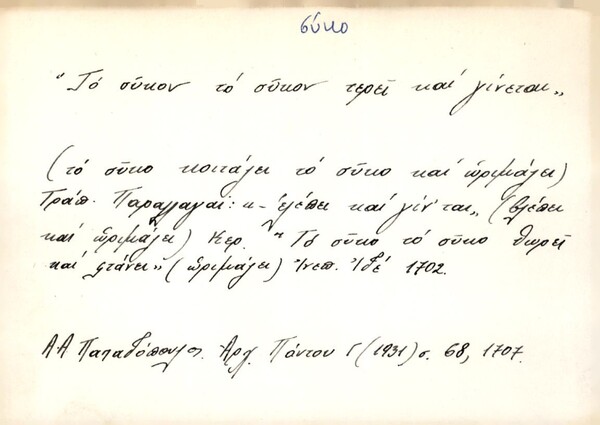 σύκο
"Τό σῦκον τό σῦκον τερεῖ καί γίνεται„
(τό σῦκο κοιτάζει τό σῦκο καί ὡριμάζει)
Τραπ. Παραλλαγαί: κ- ἐλέπει καί γίν'ται„ (βλέπει
καί ὡριμάζει) Κερ. "Τό σῦκο τό σῦκο θωρεῖ
καί φτάνει" (ὡριμάζει) Ἰνεπ. Ἰδέ 1702.
Α.Α Παπαδόπουλος. Αρχ. Πόντου Γ (1931) σ. 68, 1707.